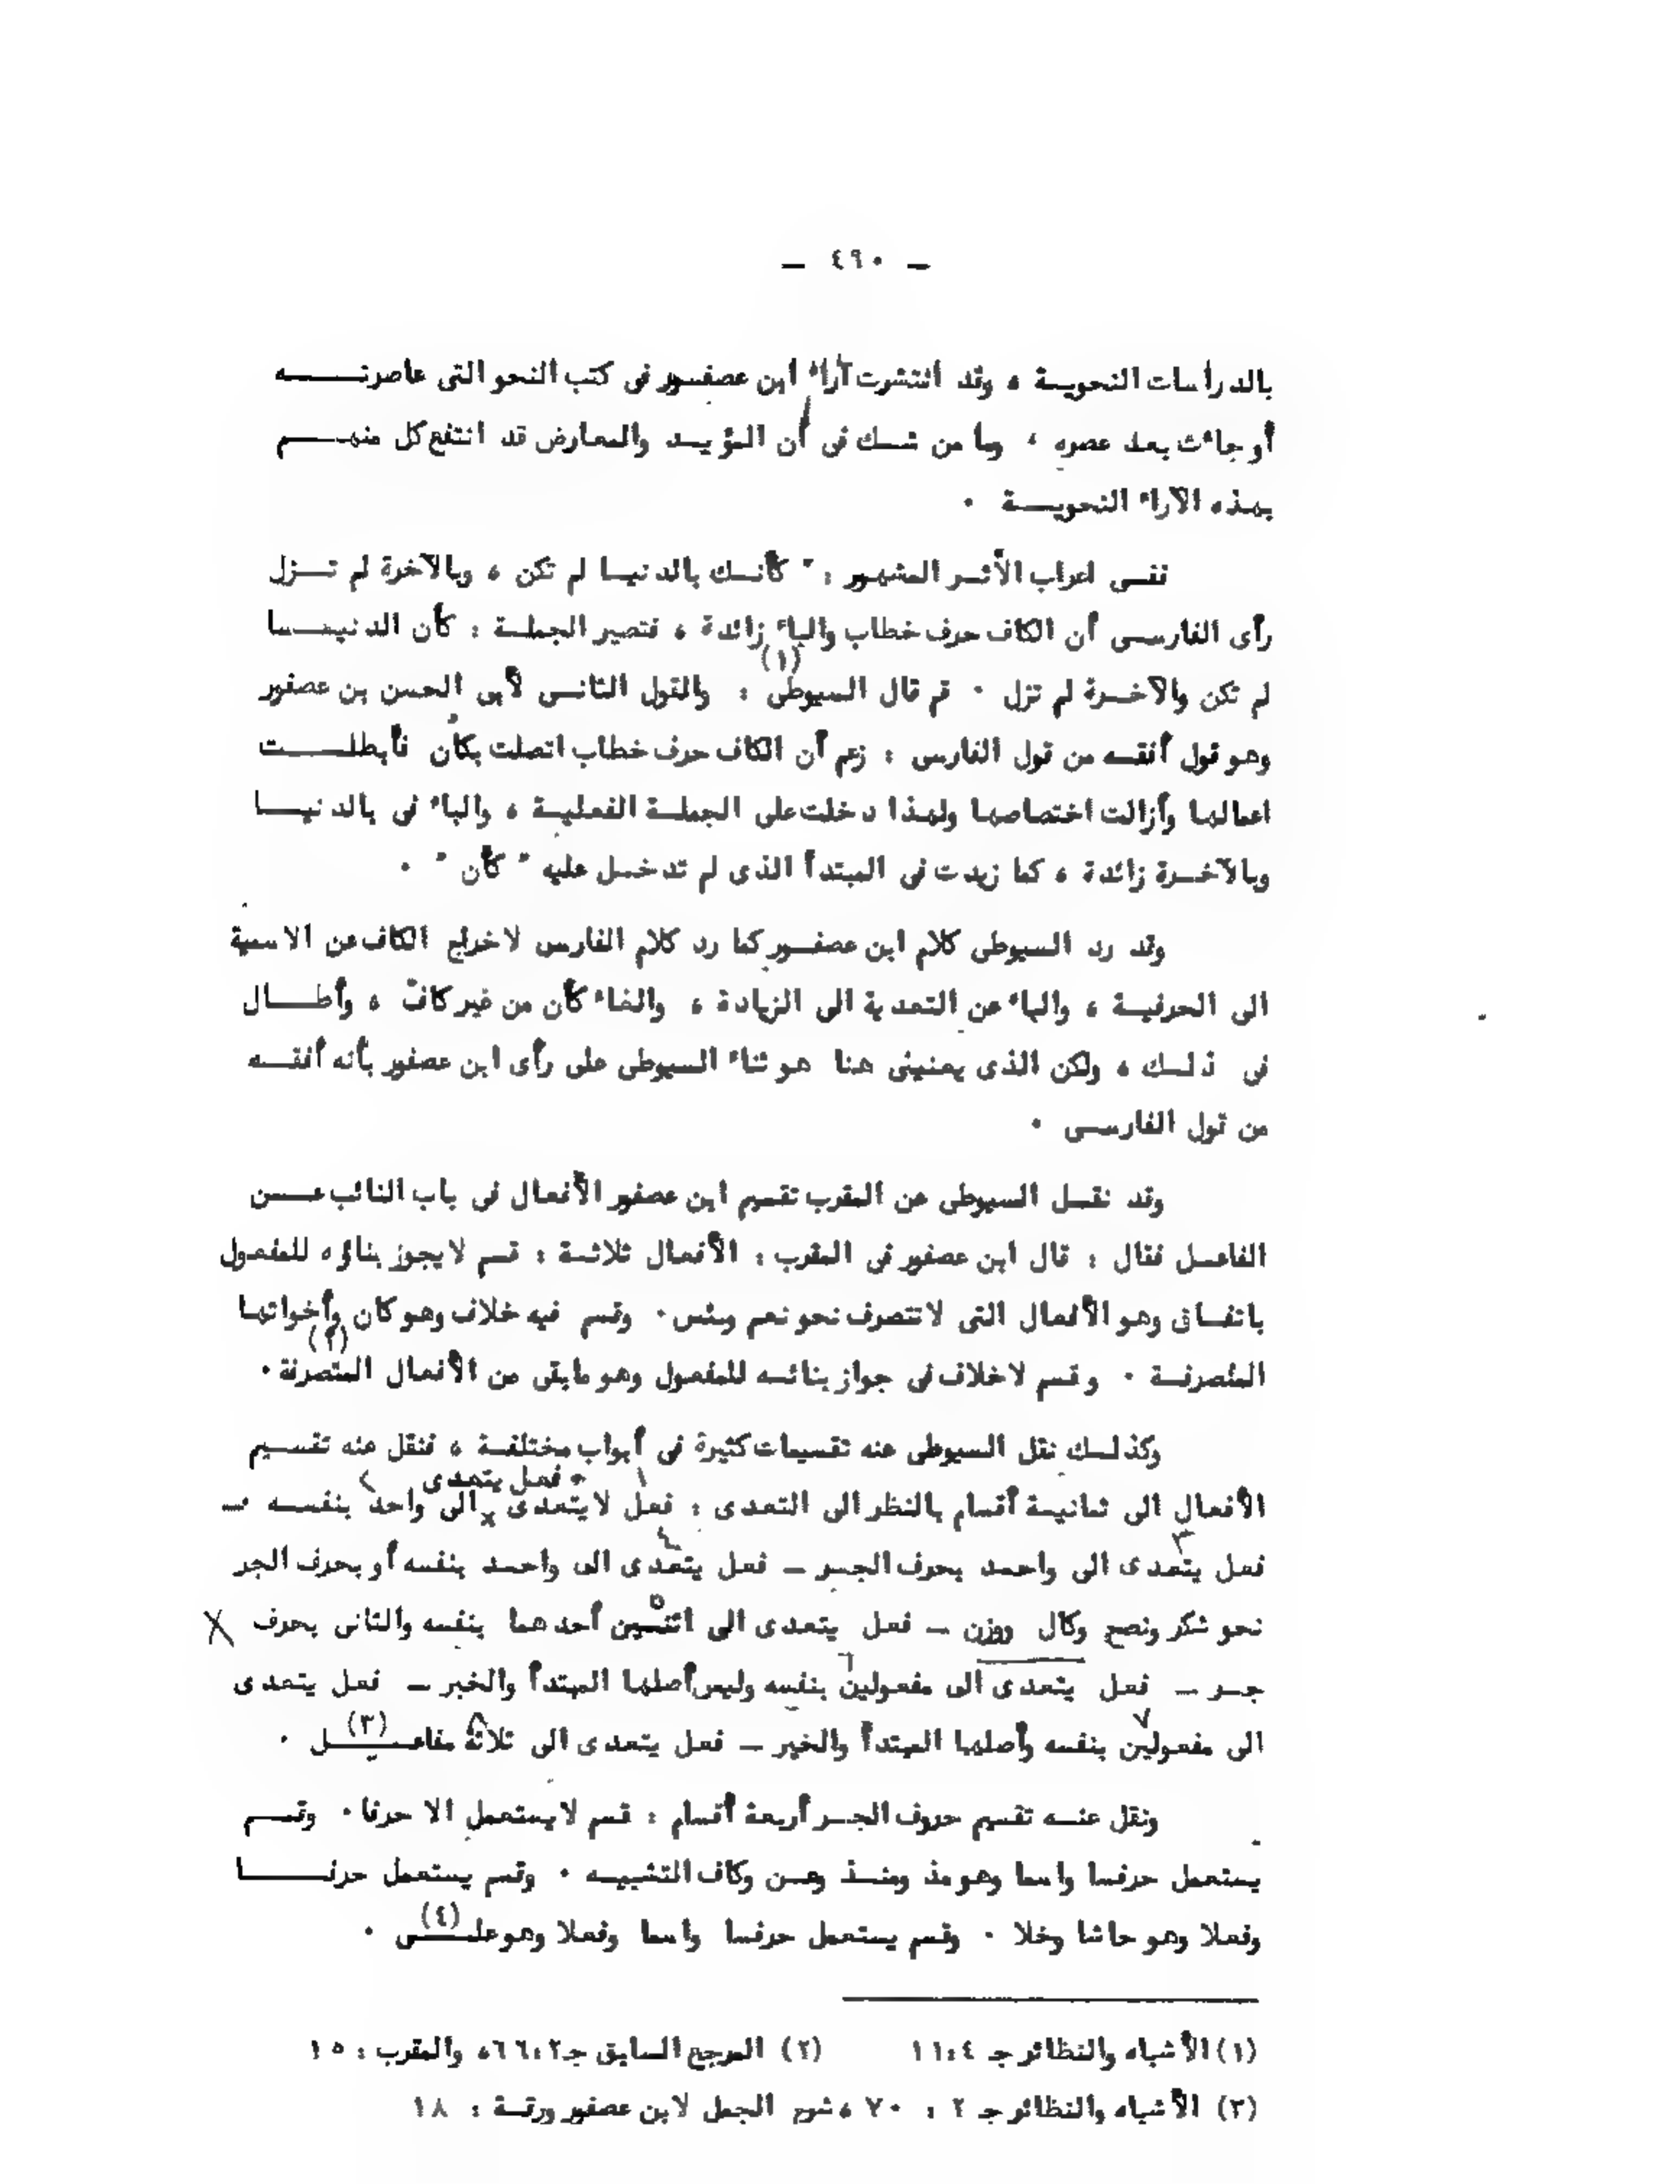 — ٤٩٠ —
بالدراسات النحويـة ، وقد انتشرت آراء ابن عصفـور فى كتب النحو التى عاصرتـــه
أو جاءت بعد عصره ، وما من شـك فى أن المؤيـد والمعارض قد انتفع كل منهـــم
بهذه الآراء النحويــة ٠
ففـى اعراب الأثـر المشهـور : " كأنـك بالدنيـا لم تكن ، وبالآخرة لم تـزل
رأى الفارسـى أن الكاف حرف خطاب والباء زائدة ، فتصير الجملـة : كأن الدنيــا
لم تكن والآخـرة لم تزل ٠ ثم قال السيوطى (١) : والقول الثانـى لأبى الحسن بن عصفور
وهو قول أفقـه من قول الفارسى : زعم أن الكاف حرف خطاب اتصلت بكأن فأبطلـــت
اعمالهـا وأزالت اختصاصها ولهذا دخلت على الجملـة الفعليـة ، والباء فى بالدنيــا
وبالآخـرة زائدة ، كما زيدت فى المبتدأ الذى لم تدخـل عليه " كأن " ٠
وقد رد السيوطى كلام ابن عصفـور كما رد كلام الفارسى لاخراج الكاف عن الاسمية
الى الحرفيـة ، والباء عن التعدية الى الزيادة ، والغاء كأن من غير كافّ ، وأطــال
فى ذلـك ، ولكن الذى يعنينى هنا هو ثناء السيوطى على رأى ابن عصفور بأنه أفقـه
من قول الفارسـى ٠
وقد نقـل السيوطى عن المقرب تقسيم ابن عصفور الأفعال فى باب النائب عــن
الفاعـل فقال : قال ابن عصفور فى المقرب : الأفعال ثلاثـة : قسم لا يجوز بناؤه للمفعول
باتفـاق وهـو الأفعال التى لا تتصرف نحو نعم وبئس ٠ وقسم فيه خلاف وهو كان وأخواتها
المتصرفـة ٠ وقسم لا خلاف فى جواز بنائـه للمفعول وهو مابقى من الأفعال المتصرفة (٢) ٠
وكذلـك نقل السيوطى عنه تقسيمات كثيرة فى أبواب مختلفـة ، فنقل عنه تقسـيم
- فعل يتعدى
الأفعال الى ثمانيـة أقسام بالنظر الى التعدى : فعل ١ لا يتعدى × الى واحد ٢ بنفسـه —
فعل يتعدى ٣ الى واحـد بحرف الجـر — فعل يتعدى ٤ الى واحـد بنفسه أو بحرف الجر
نحو شكر ونصح وكال ووزن — فعـل يتعدى الى اثنـين ٥ أحدهما بنفسه والثانى بحرف ×
جـر — فعـل يتعدى الى مفعولين ٦ بنفسه وليس أصلهما المبتدأ والخبر — فعـل يتعدى
الى مفعولين ٧ بنفسه وأصلهما المبتدأ والخبر — فعـل يتعدى الى ثلاثة ٨ مفاعـيـل (٣) ٠
ونقل عنـه تقسيم حروف الجـر أربعة أقسام : قسم لا يستعمل الا حرفا ٠ وقسـم
يستعمل حرفـا واسما وهو مذ ومنـذ وعـن وكاف التشبيـه ٠ وقسم يستعمل حرفـــا
وفعلا وهـو حاشا وخلا ٠ وقسم يستعمل حرفـا واسما وفعلا وهو علــى (٤) ٠
(١) الأشباه والنظائر جـ ٤ : ١١ (٢) المرجع السابق جـ ٢ : ٦٦، والمقرب : ١٥
(٣) الأشباه والنظائر جـ ٢ : ٧٠ ، شرح الجمل لابن عصفور ورقـة : ١٨